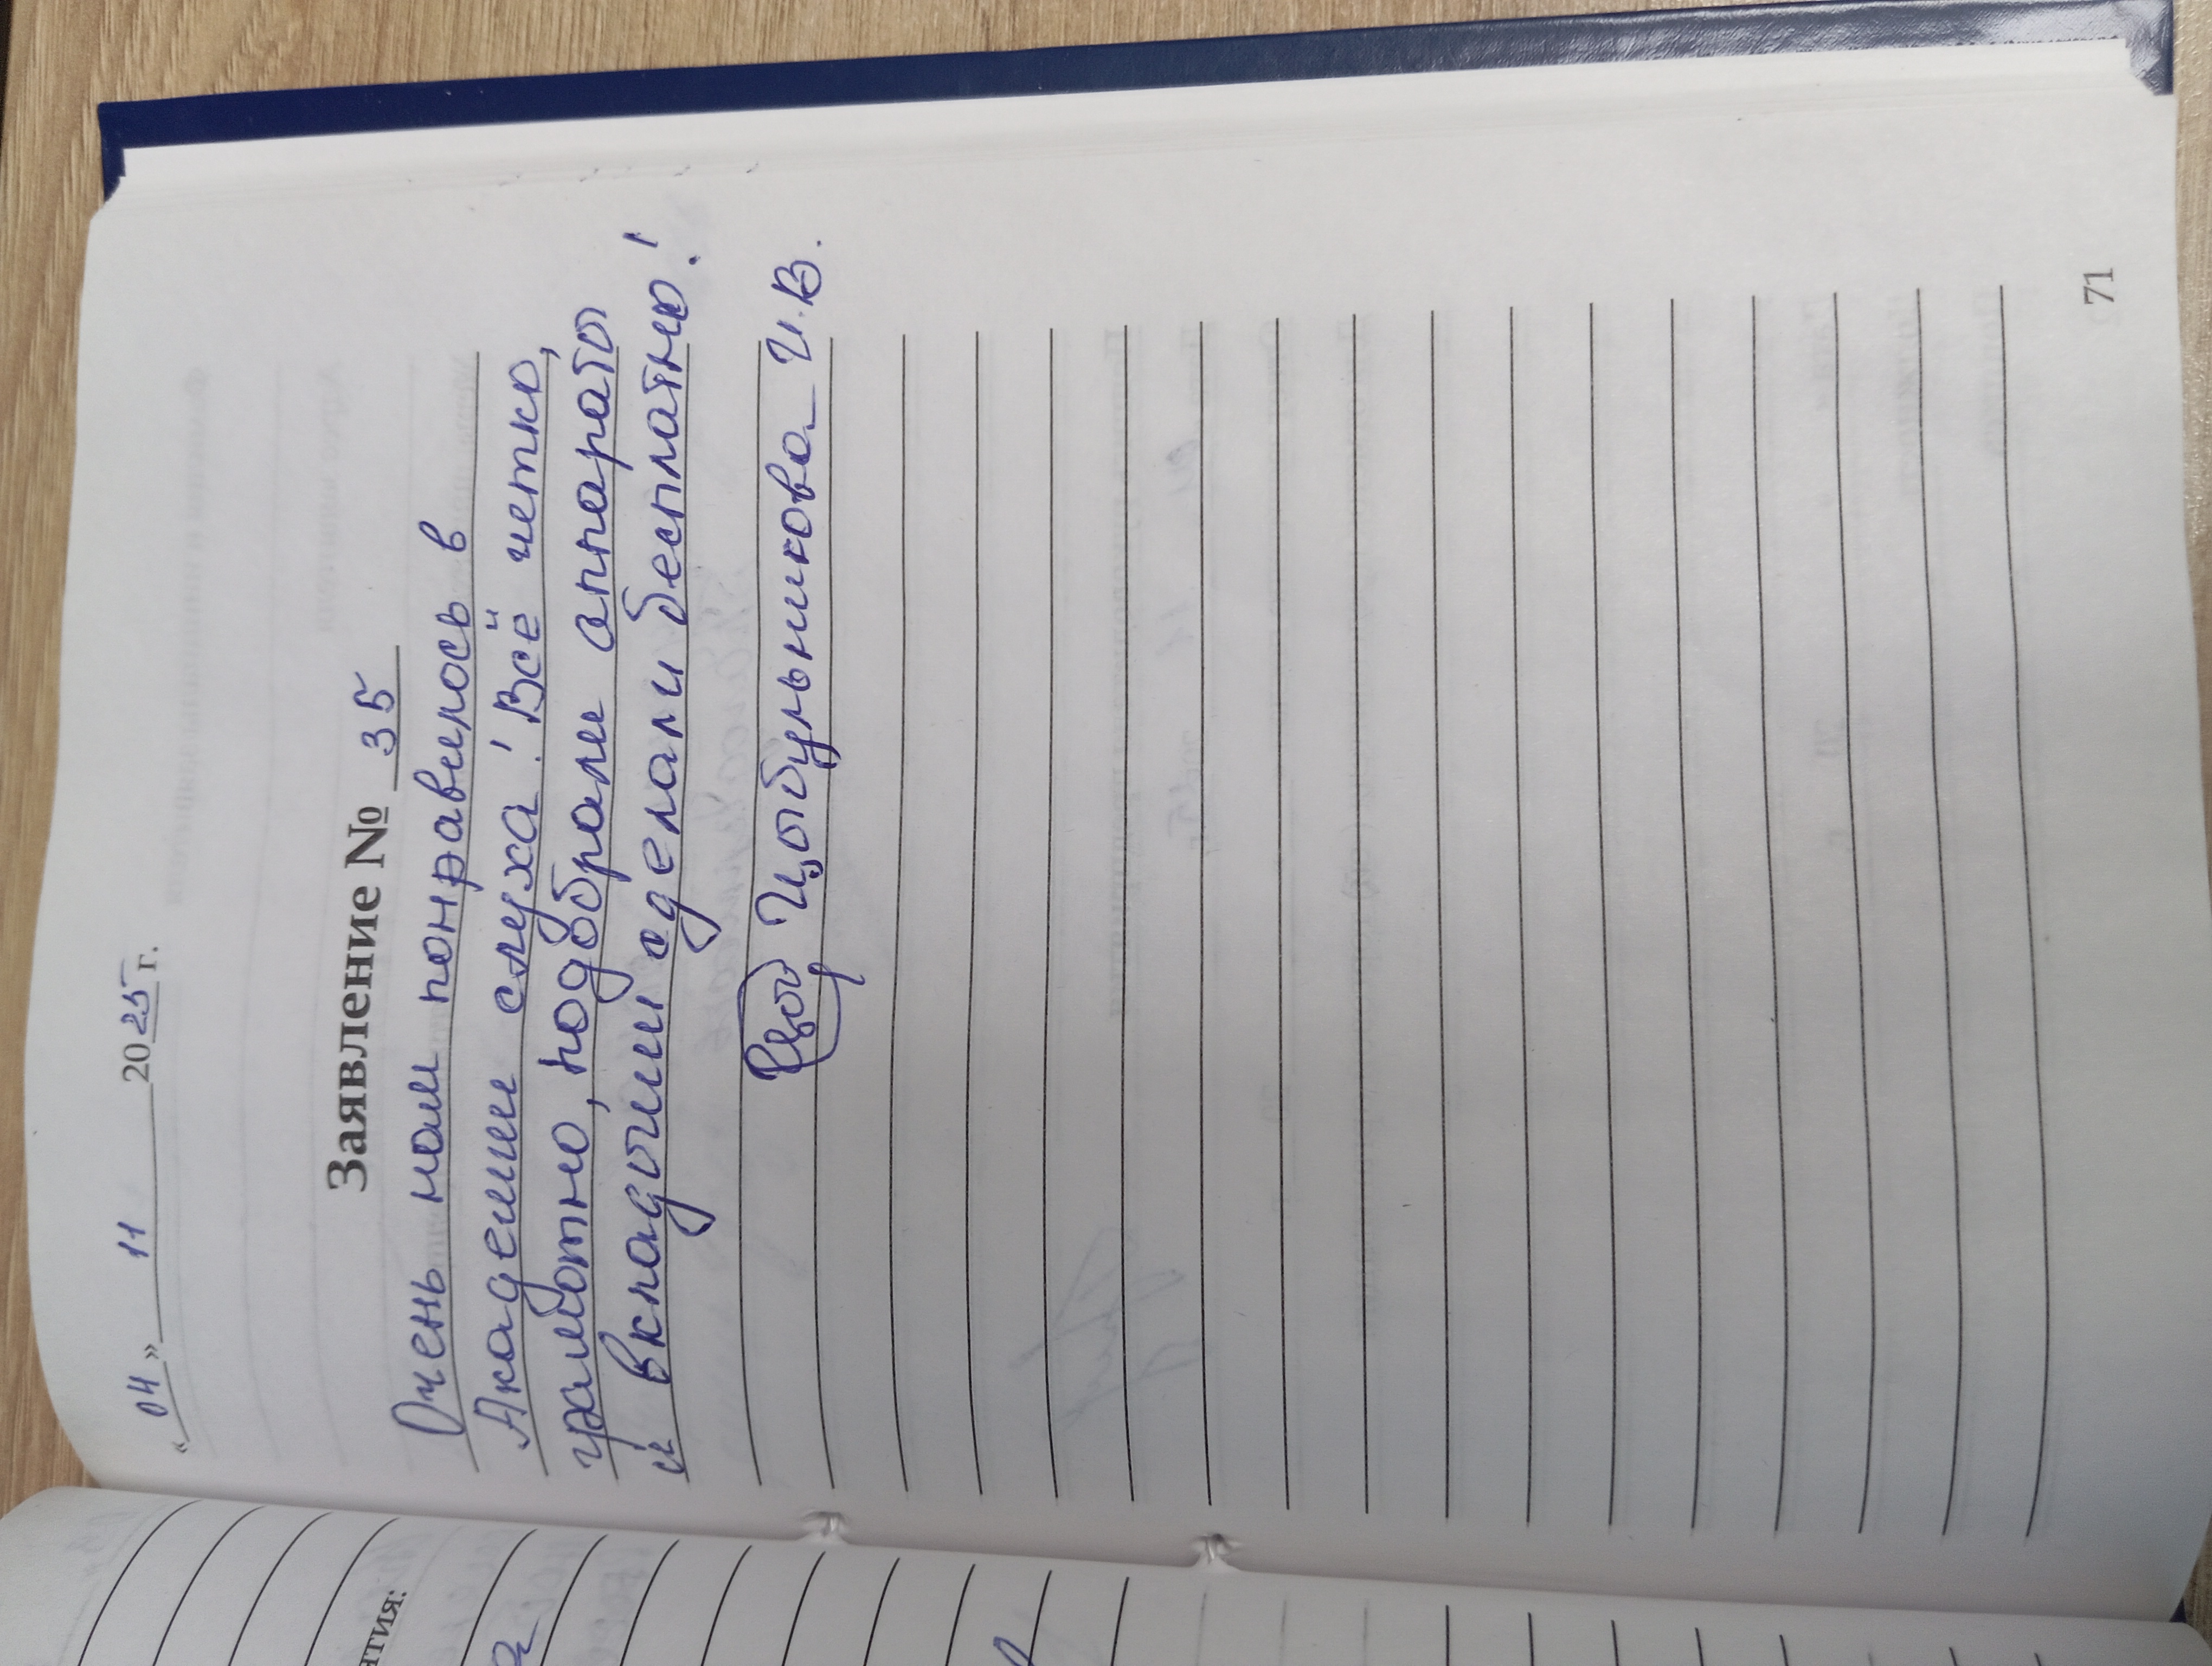 « 04 » 11 2025 г.
Заявление № 35
Очень нам понравилось в
Академии слуха! Всё четко,
грамотно, подобрали аппараты
и вкладыши сделали бесплатно!
Цыбульникова И.В.
71
нтия: